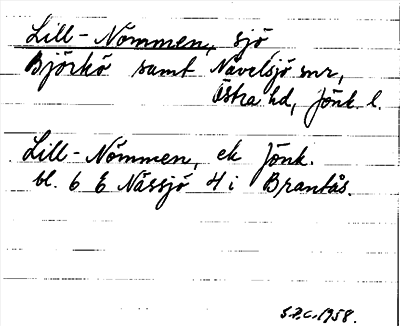 Lill-Nömmen, sjö,
Björkö samt Nävelsjö snr,
Östra hd, Jönk. l.
Lill-Nömmen, ek Jönk.
bl. 6 E Nässjö 4 i Brantås.
S.P.C. 1958.